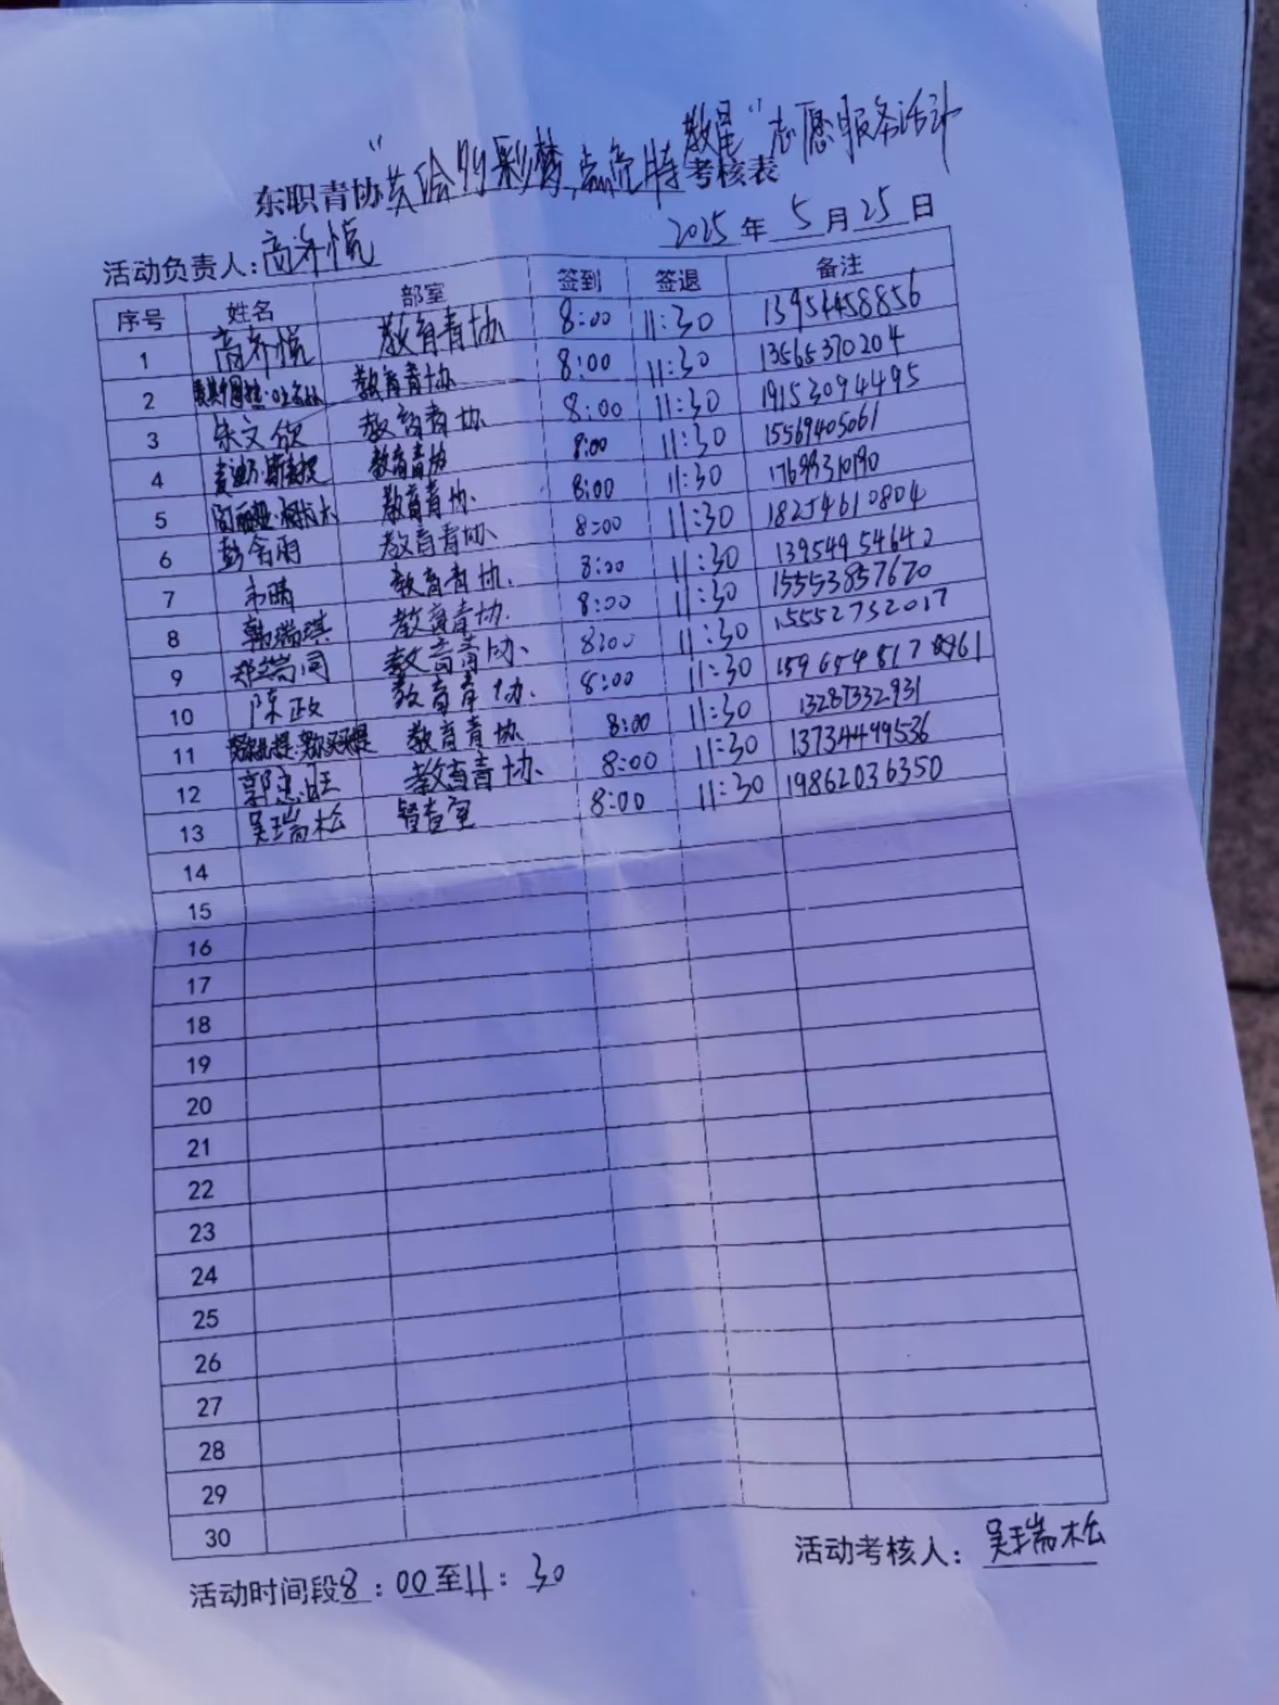 "共绘 彩梦,点亮特教星"志愿服务活动
东职青协 考核表
2025年5月25日
活动负责人:高齐悦
序号 姓名 部室 签到 签退 备注
1 高齐悦 教育青协 8:00 11:30 13954458856
2 教育青协 8:00 11:30 13565370204
3 朱文欣 教育青协 8:00 11:30 19153094495
4 教育青协 8:00 11:30 15569405061
5 教育青协 8:00 11:30 17699310190
6 彭含雨 教育青协 8:00 11:30 18254610804
7 韦晴 教育青协 8:00 11:30 13954954642
8 韩瑞琪 教育青协 8:00 11:30 15553857670
9 郑端同 教育青协 8:00 11:30 15552732017
10 陈政 教育青协 8:00 11:30
11 教育青协 8:00 11:30 13287332931
12 郭忠旺 教育青协 8:00 11:30 13734499536
13 吴瑞松 督查室 8:00 11:30 19862036350
14
15
16
17
18
19
20
21
22
23
24
25
26
27
28
29
30
活动考核人:吴瑞松
活动时间段8:00至11:30